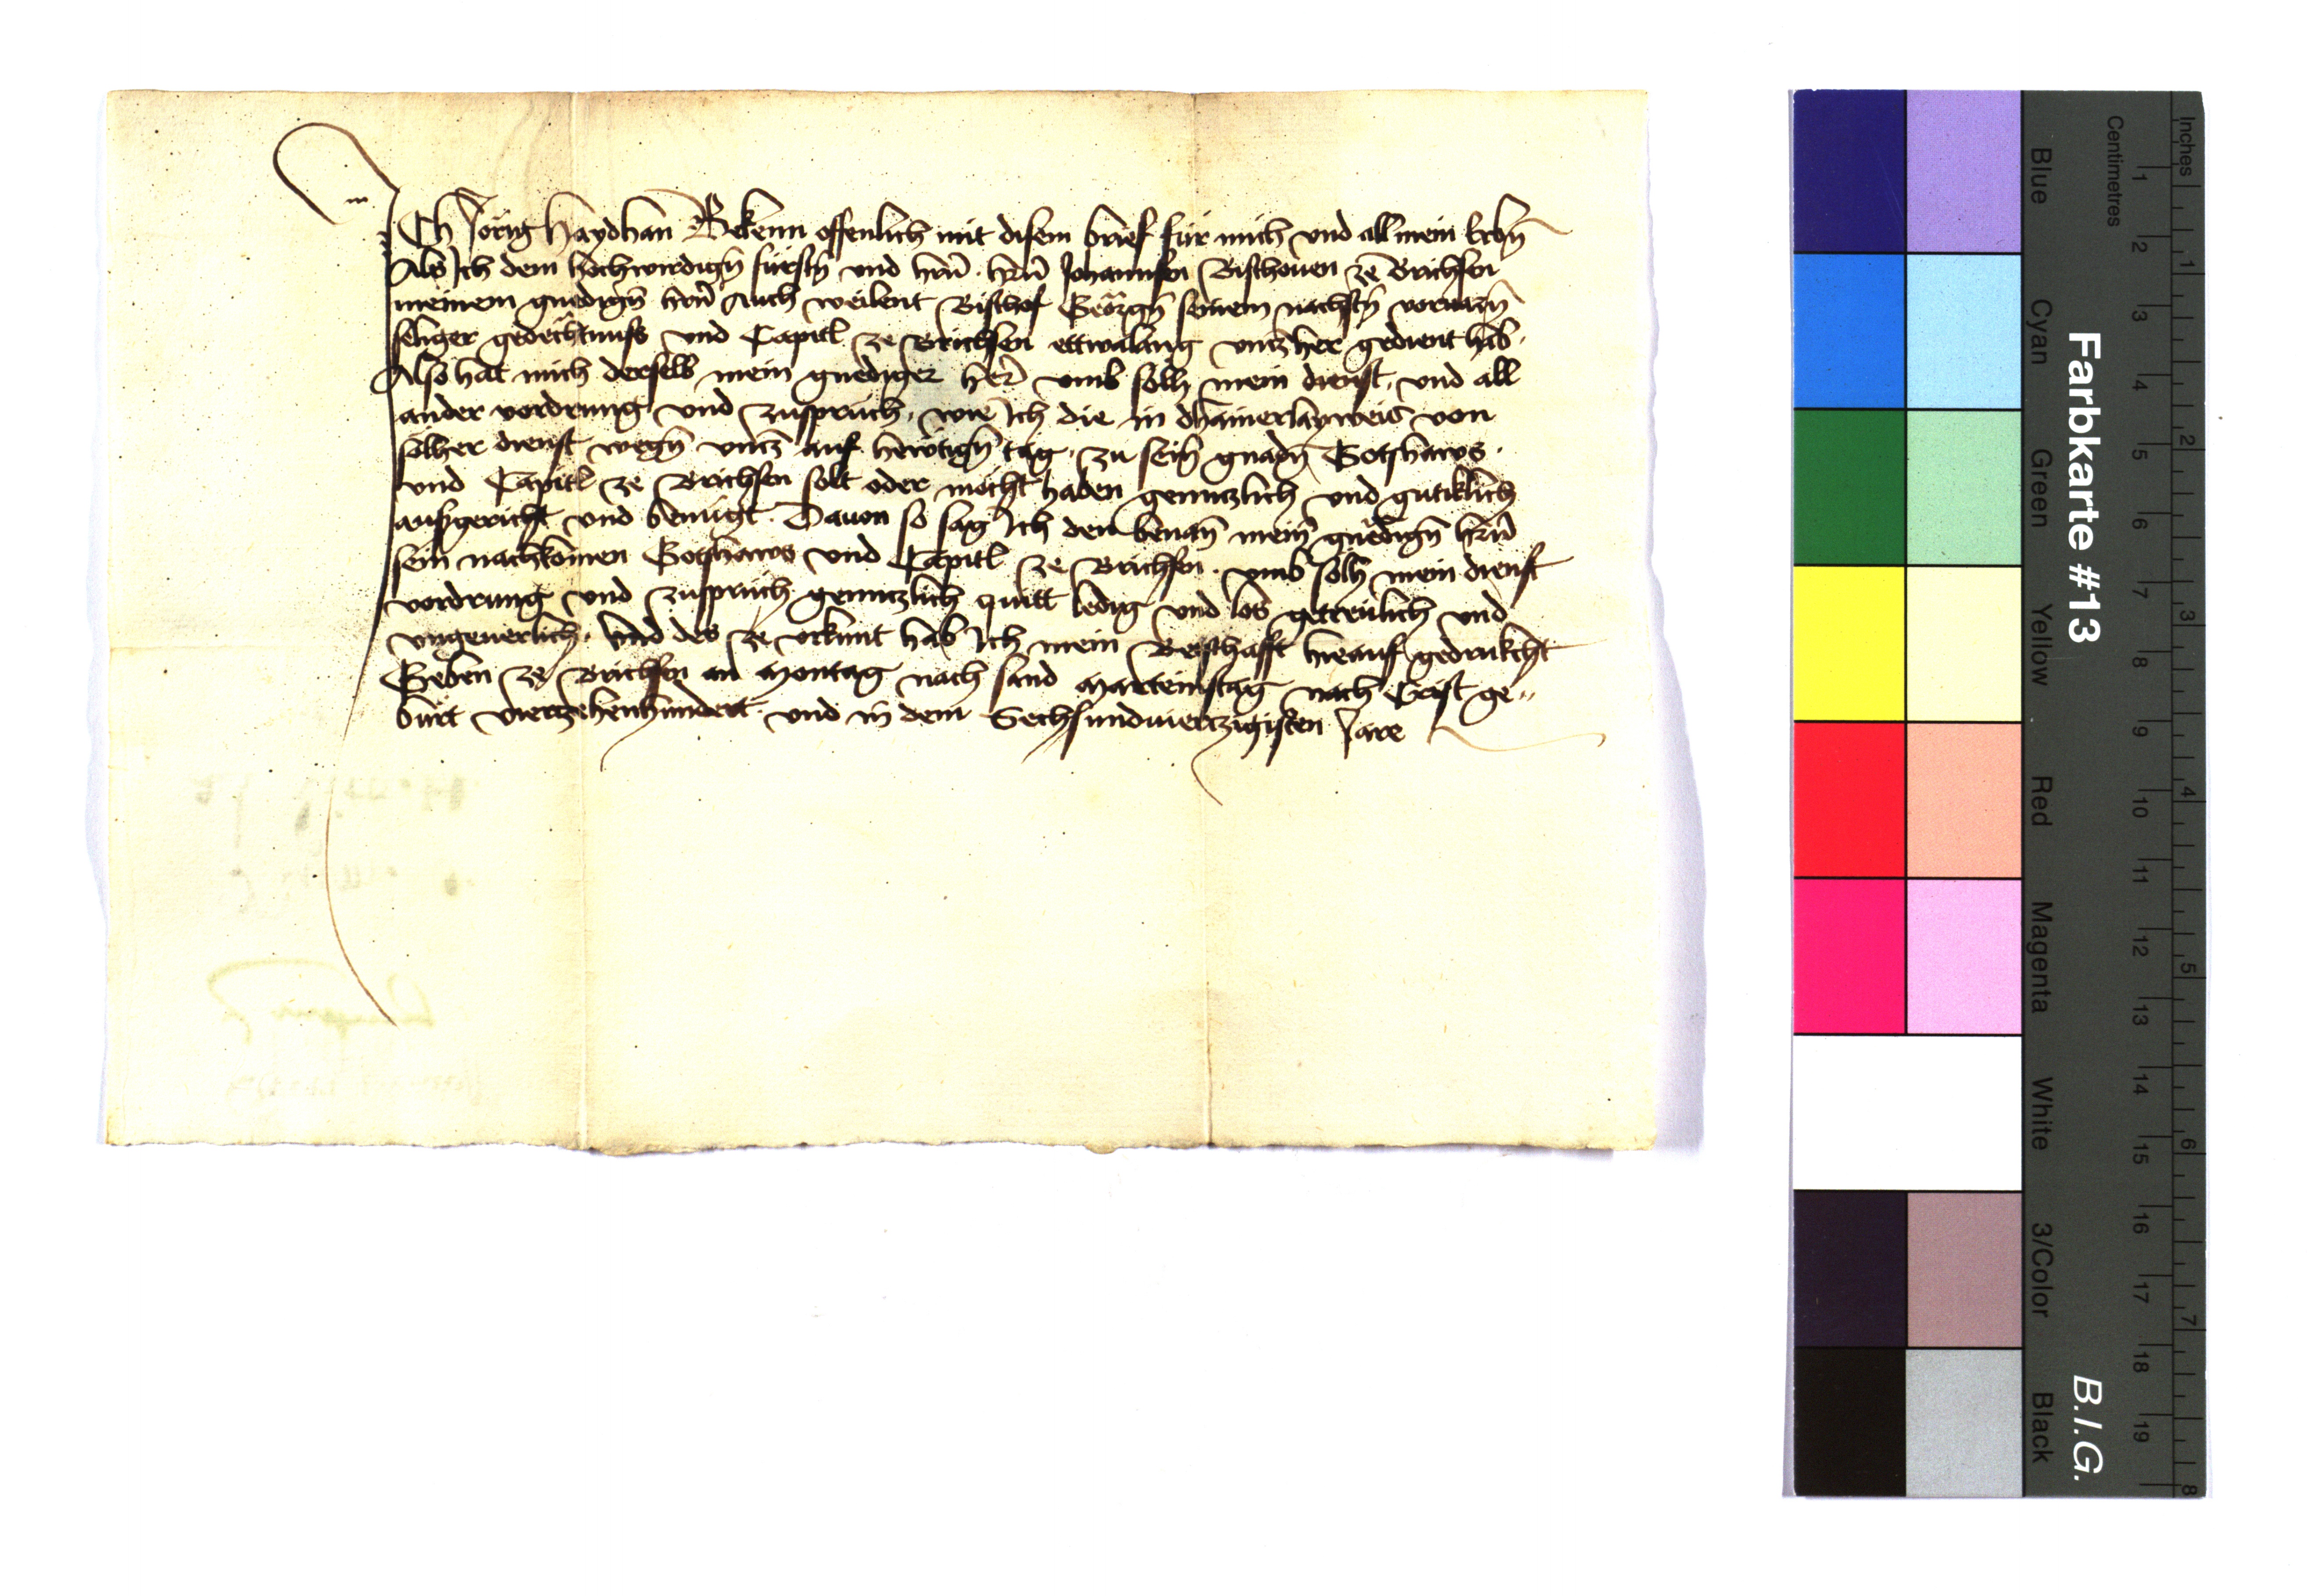 Ich Jörig Haydhan Bekenn offenlich mit disem brief für mich vnd all mein Erbn̄
Als Ich dem hochwirdign̄ fürstn̄ vnd hrn̄ hrn̄ Johannsen Bischouen ze Brichsen
meinem gnedign̄ hrn̄ Auch weilent Bischof Geörgn̄ seinem nachstn̄ voruarn̄
seliger gedechtnuss vnd Capitl ze Brichsen ettwalang vntzher gedient hab.
Also hat mich derselb mein gnediger her̄ vmb solh mein dienst, vnd all
ander vordrung vnd zuspruch, wie Ich die in dhainerlayweis von
solher dienst wegn̄ vntz auf hewtign̄ tag, zu sein̄ gnadn̄ Gotzhaws.
vnd Capitl ze Brichsen solt oder mocht haben genntzlich vnd gutiklich
ausgericht vnd benügt. Dauon so sag Ich den benan̄ mein̄ gnedign̄ hrn̄
sein nachkomen Gotzhaws vnd Capitl ze Brichsen. vmb solh mein dienst
vordrung vnd zuspruch genntzlich quitt ledig vnd los getreulich vnd
vngeuerlich. Vnd des ze vrkunt hab Ich mein Betschafft hieauf gedrukcht
Geben ze Brichsen an Montag nach sand Marteinstag nach Crist ge„
burt viertzehenhundert vnd in dem Sechsundviertzigisten Jare
Farbkarte #13
B.I.G.
Blue Cyan Green Yellow Red Magenta White 3/Color Black
Centimetres
1 2 3 4 5 6 7 8 9 10 11 12 13 14 15 16 17 18 19
Inches
1 2 3 4 5 6 7 8